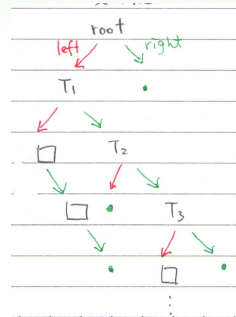 root
left right
T₁
T₂
T₃